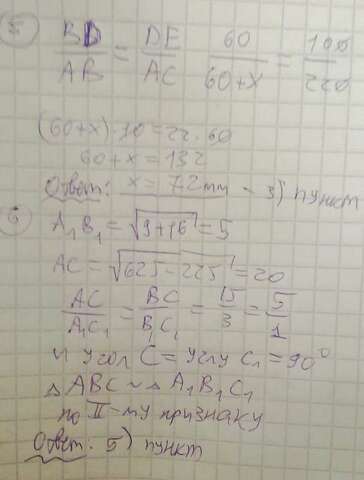 5) BD/AB = DE/AC 60/(60+x) = 100/220
(60+x)·10=22·60
60+x = 132
Ответ: x = 72mm - 3) пункт
6) A₁B₁ = √(9+16) = 5
AC = √(625-225) = 20
AC/A₁C₁ = BC/B₁C₁ = 15/3 = 5/1
и угол C = углу C₁ = 90°
△ABC ~ △A₁B₁C₁
по II-му признаку
Ответ: 5) пункт